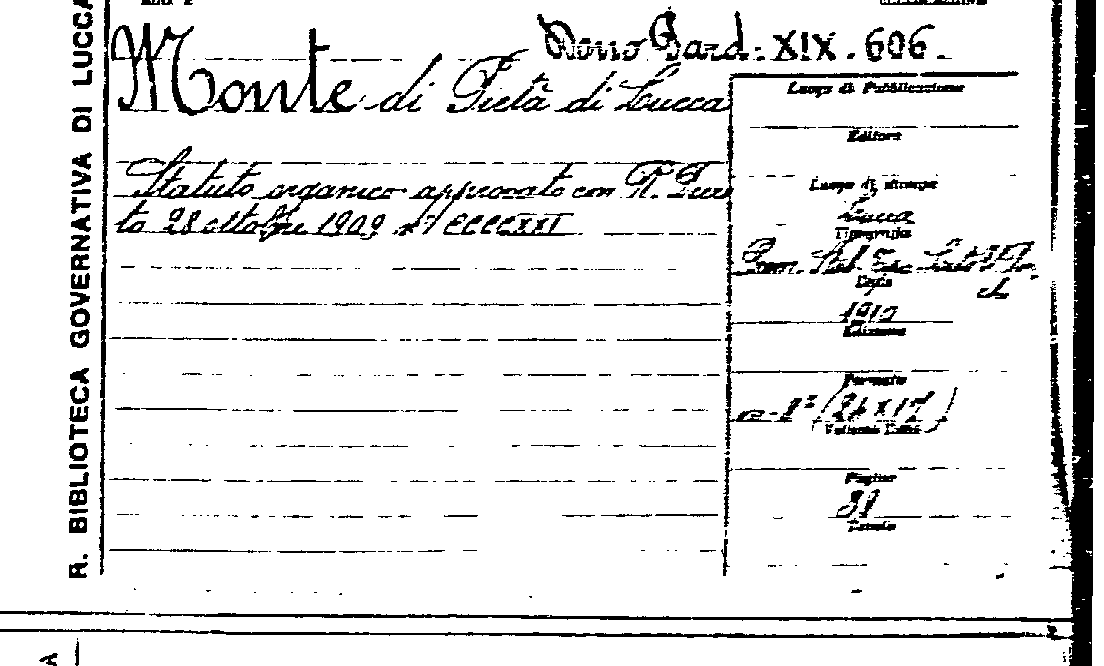 R. BIBLIOTECA GOVERNATIVA DI LUCCA
XIX. 606.
Monte di Pietà di Lucca
Statuto organico approvato con R. Decre
to 28 ottobre 1909 n° CCCCXXI
Luogo di Pubblicazione
Editore
Luogo di stampa
Lucca
Tipografia
Data
1910
Edizione
Formato
in-8° (26 X 17)
Volume
Pagine
31
Tavole
A